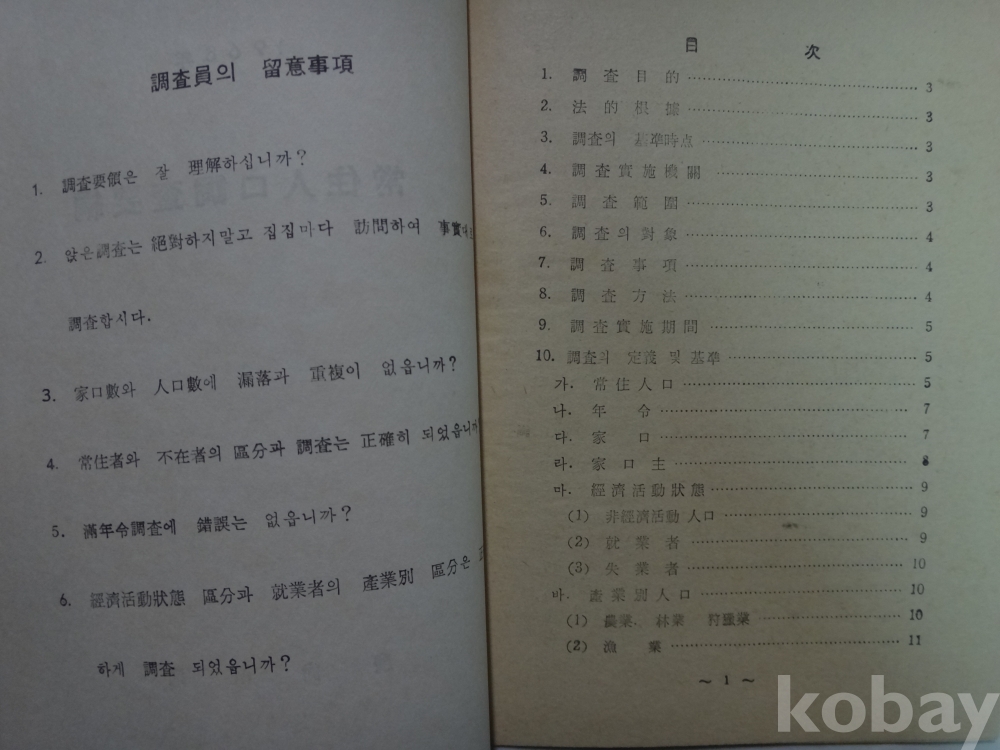 調査員의 留意事項
1. 調査要領은 잘 理解하십니까?
2. 앉은調査는 絕對하지말고 집집마다 訪問하여 事實대로
調査합시다.
3. 家口數와 人口數에 漏落과 重複이 없읍니까?
4. 常住者와 不在者의 區分과 調査는 正確히 되었읍니까
5. 滿年令調査에 錯誤는 없읍니까?
6. 經濟活動狀態 區分과 就業者의 產業別 區分은
하게 調査 되었읍니까?
目 次
1. 調査目的 3
2. 法的根據 3
3. 調査의 基準時点 3
4. 調査實施機關 3
5. 調査範圍 3
6. 調査의對象 4
7. 調査事項 4
8. 調査方法 4
9. 調査實施期間 5
10. 調査의 定義 및 基準 5
가. 常住人口 5
나. 年令 7
다. 家口 7
라. 家口主 8
마. 經濟活動狀態 9
(1) 非經濟活動人口 9
(2) 就業者 9
(3) 失業者 10
바. 產業別人口 10
(1) 農業、林業 狩獵業 10
(2) 漁業 11
~ 1 ~
kobay